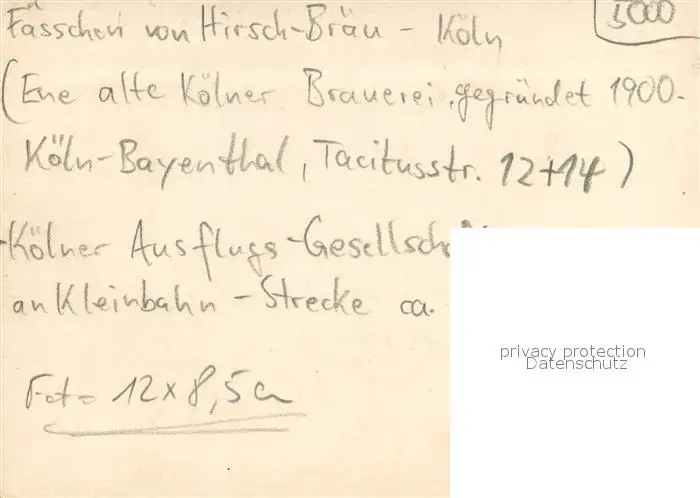 5000
Fässchen von Hirsch-Bräu - Köln
(Eine alte Kölner Brauerei, gegründet 1900.
Köln-Bayenthal, Tacitusstr. 12+14)
-Kölner Ausflugs-Gesellschaft
an Kleinbahn-Strecke ca.
Foto 12x8,5
privacy protection
Datenschutz